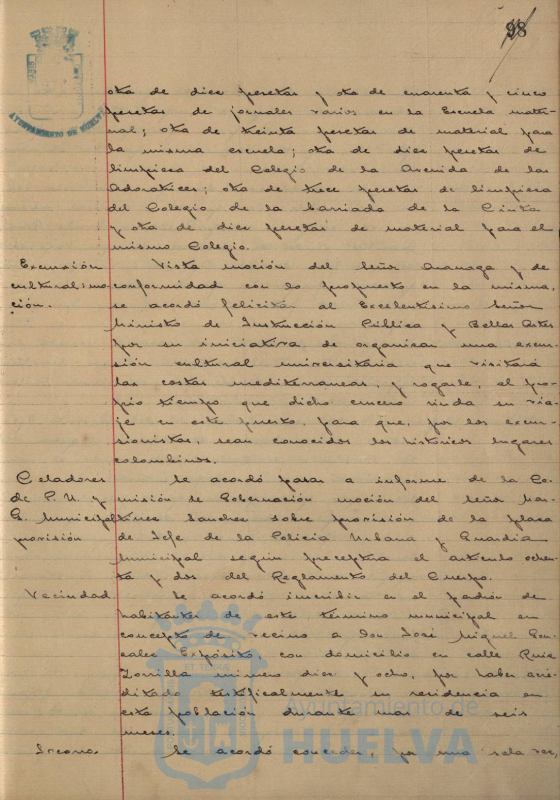 98
AYUNTAMIENTO DE HUELVA
otra de diez pesetas y otra de cuarenta y cinco
pesetas de jornales varios en la Escuela mater-
nal; otra de treinta pesetas de material para
la misma escuela; otra de diez pesetas de
limpieza del Colegio de la Avenida de las
Adoratrices; otra de trece pesetas de limpieza
del Colegio de la barriada de la Cinta
y otra de diez pesetas de material para el
mismo Colegio.
Excursión
cultural: mo-
ción.
Vista moción del Señor y de
conformidad con lo propuesto en la misma,
se acordó felicitar al Excelentísimo Señor
Ministro de Instrucción Pública y Bellas Artes
por su iniciativa de organizar una excur-
sión cultural universitaria que visitará
las costas mediterraneas, y rogarle, al pro-
pio tiempo que dicho crucero rinda su via-
je en este puerto, para que, por los excur-
sionistas, sean conocidos los históricos lugares
colombinos.
Celadores
de P. U. y
G. Municipal
provisión
Se acordó pasar a informe de la Co-
misión de Gobernación moción del Señor Mar-
tínez Sanchez sobre provisión de la plaza
de Jefe de la Policia Urbana y Guardia
Municipal segun preceptua el artículo ochen-
ta y dos del Reglamento del Cuerpo.
Vecindad
Se acordó inscribir en el padrón de
habitantes de este término municipal en
concepto de vecino a Don José Miguel Gon-
zalez Expósito, con domicilio en calle Ruiz
Zorrilla número diez y ocho, por haber acre-
ditado testificalmente su residencia en
esta población durante mas de seis
meses.
Socorro.
Se acordó conceder, por una sola vez,
Ayuntamiento de
HUELVA